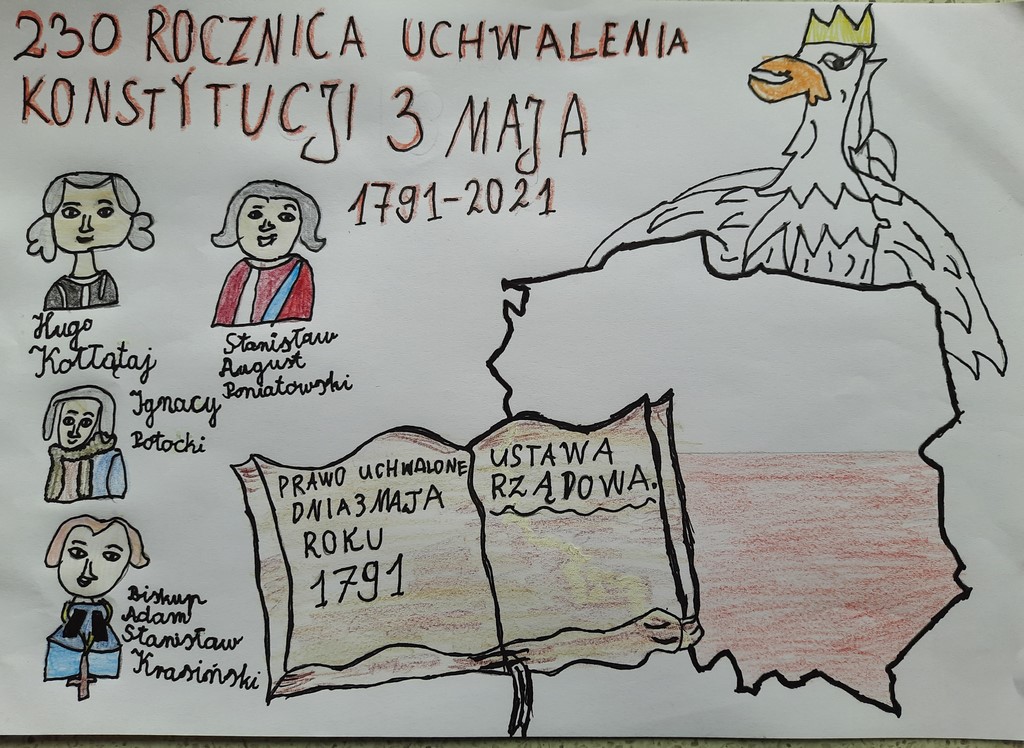 230 ROCZNICA UCHWALENIA
KONSTYTUCJI 3 MAJA
1791-2021
Hugo
Kołłątaj
Stanisław
August
Poniatowski
Ignacy
Potocki
Biskup
Adam
Stanisław
Krasiński
PRAWO UCHWALONE
DNIA 3 MAJA
ROKU
1791
USTAWA
RZĄDOWA.